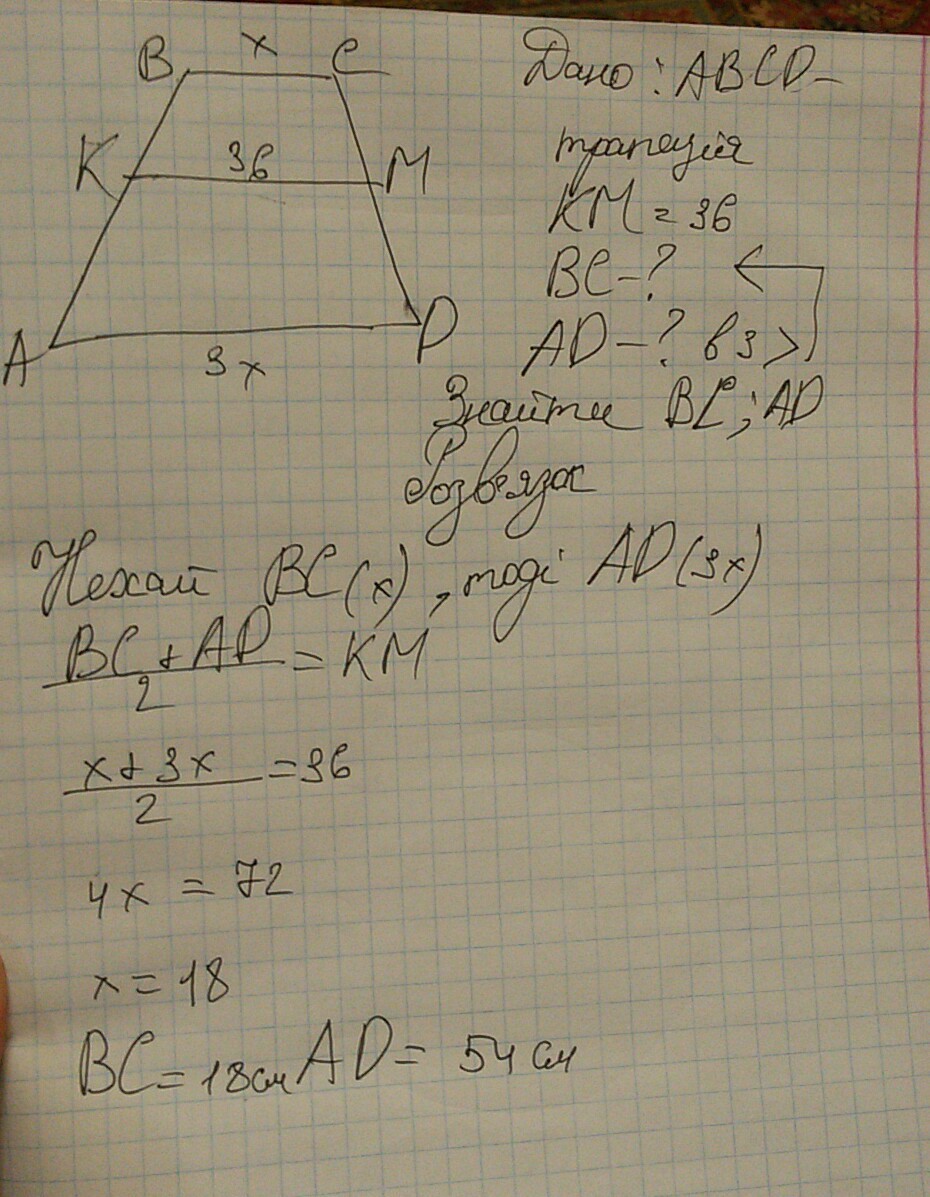 B x C
K 36 M
A 3x D
Дано: ABCD-
трапеція
KM = 36
BC-?
AD-? в 3 >
Знайти BC; AD
Розв'язок
Нехай BC(x), тоді AD(3x)
BC+AD/2 = KM
x+3x/2 = 36
4x = 72
x = 18
BC = 18см AD = 54 см